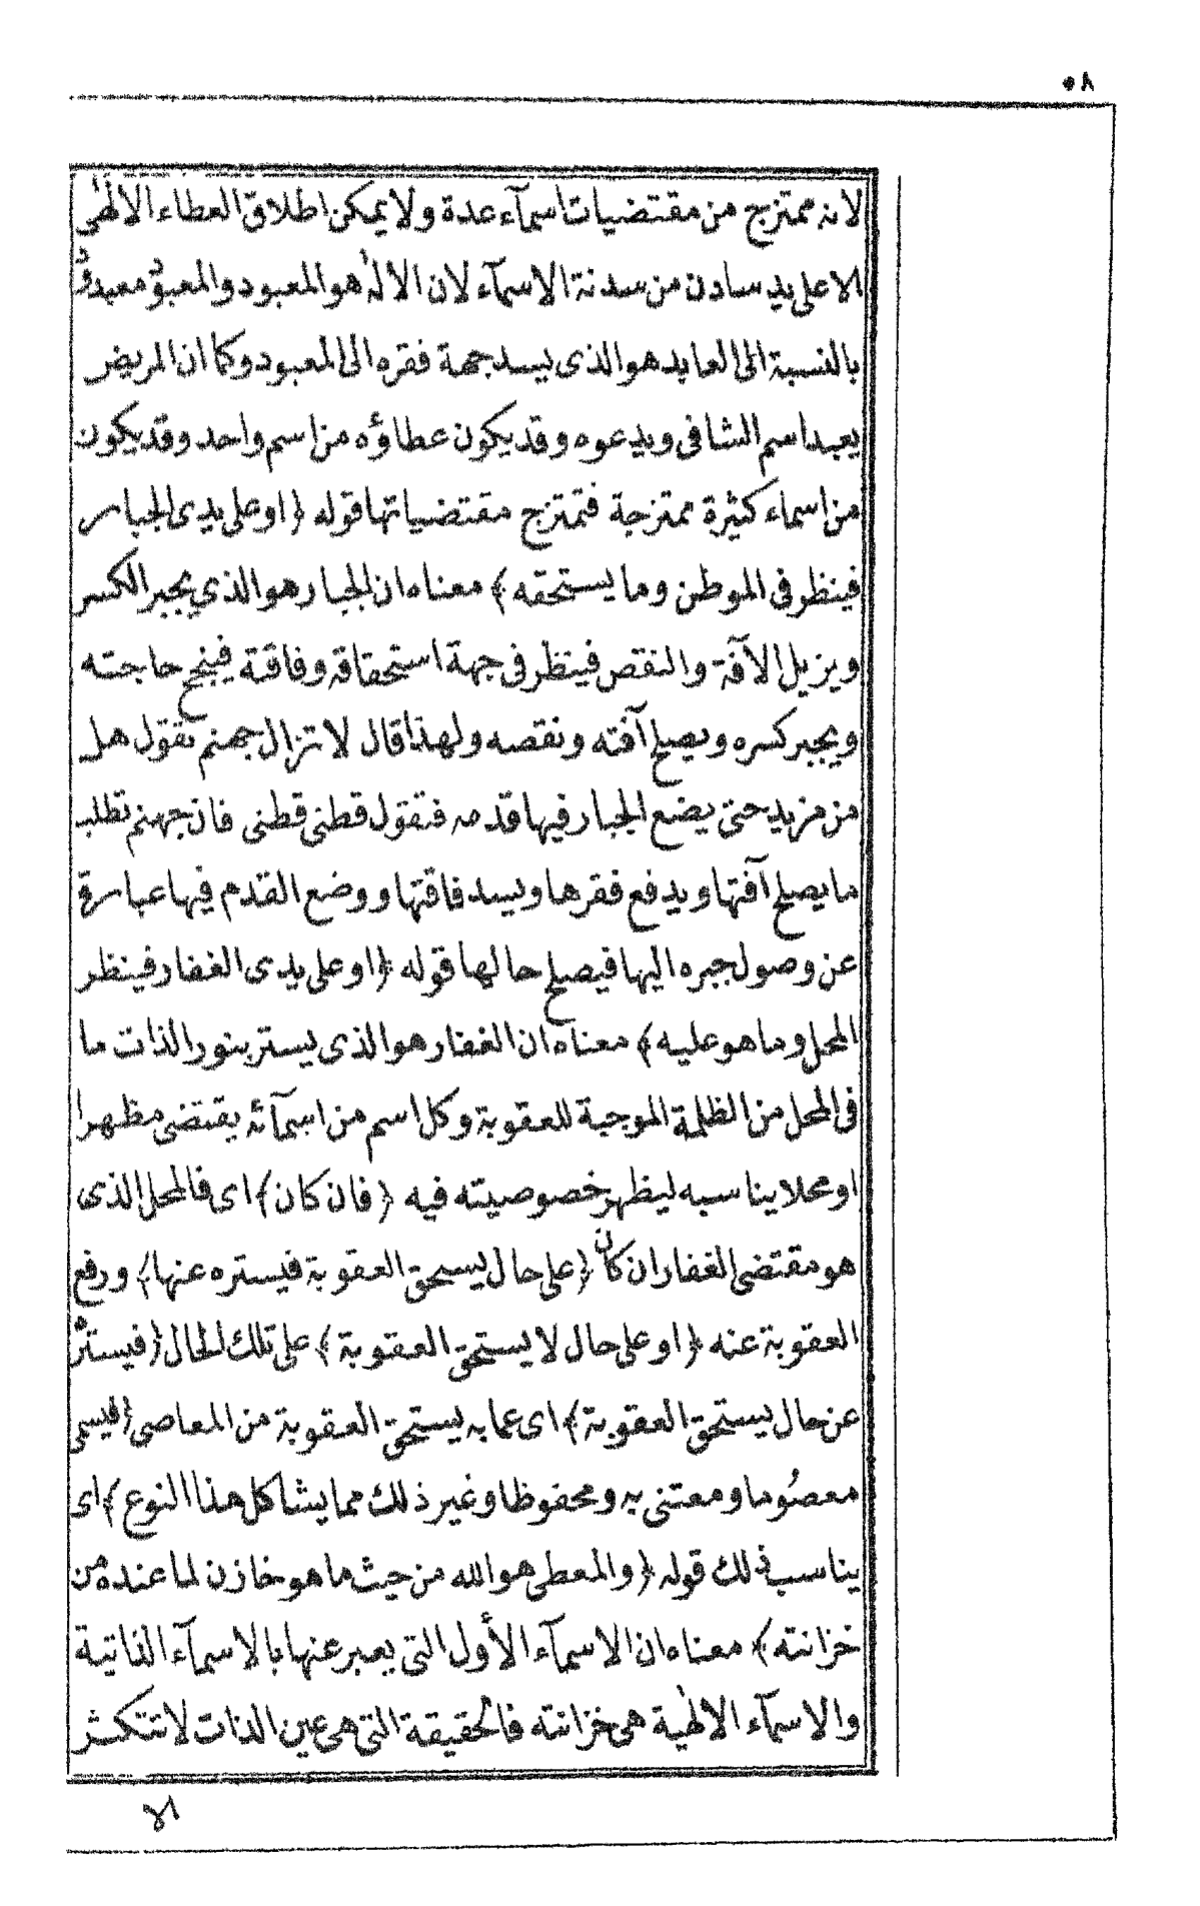 ٥٨
لانه ممتزج من مقتضيات اسمآء عدة ولا يمكن اطلاق العطاء الالهٰى
الا على يد سادن من سدنة الاسمآء لان الالٰه هو المعبود والمعبود معبود
بالنسبة الى العابد هو الذى يسد جهة فقره الى المعبود وكما ان المريض
يعبد اسم الشافى ويدعوه وقد يكون عطاؤه من اسم واحد وقد يكون
من اسماء كثيرة ممتزجة فتمتزج مقتضياتها قوله ﴿اوعلى يدى الجبار
فينظر فى الموطن وما يستحقه﴾ معناه ان الجبار هو الذي يجبر الكسر
ويزيل الآفة والنقص فينظر فى جهة استحقاقه وفاقته فينجح حاجته
ويجبر كسره ويصلح آفته ونقصه ولهذا قال لا تزال جهنم تقول هل
من مزيد حتى يضع الجبار فيها قدمه فتقول قطنى قطنى فان جهنم تطلب
ما يصلح آفتها ويدفع فقرها ويسد فاقتها ووضع القدم فيها عبارة
عن وصول جبره اليها فيصلح حالها قوله ﴿اوعلى يدى الغفار فينظر
المحل وما هو عليه﴾ معناه ان الغفار هو الذى يستر بنور الذات ما
فى المحل من الظلمة الموجبة للعقوبة وكل اسم من اسمآئه يقتضى مظهرا
او محلا يناسبه ليظهر خصوصيته فيه ﴿فان كان﴾ اى فالمحل الذى
هو مقتضى الغفار ان كان ﴿على حال يستحق العقوبة فيستره عنها﴾ ورفع
العقوبة عنه ﴿اوعلى حال لا يستحق العقوبة﴾ على تلك الحال ﴿فيستره
عن حال يستحق العقوبة﴾ اى عما به يستحق العقوبة من المعاصى ﴿فيسمى
معصُوما ومعتنى به ومحفوظا وغير ذلك مما يشاكل هذا النوع﴾ اى
يناسب ذلك قوله ﴿والمعطى هو الله من حيث ما هو خازن لما عنده من
خزانته﴾ معناه ان الاسمآء الأول التى يعبر عنها بالاسمآء الذاتية
والاسمآء الالهٰية هى خزانته فالحقيقة التى هى عين الذات لا تتكثر
الا